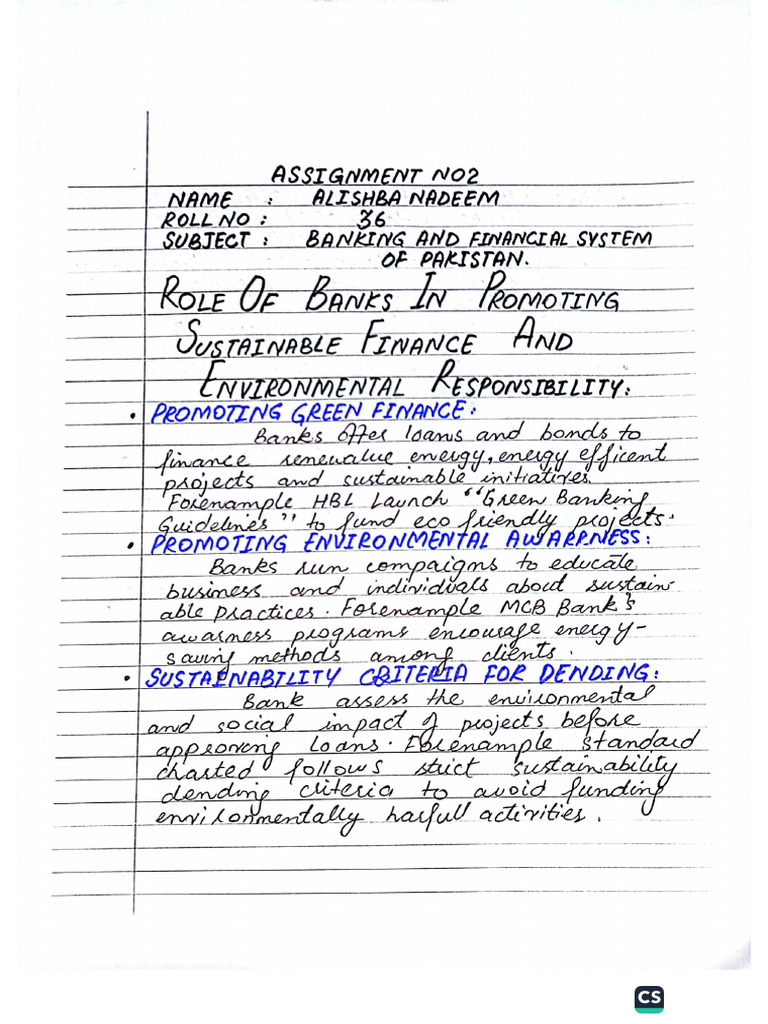 ASSIGNMENT NO2
NAME : ALISHBA NADEEM
ROLL NO : 36
SUBJECT : BANKING AND FINANCIAL SYSTEM
OF PAKISTAN.
ROLE OF BANKS IN PROMOTING
SUSTAINABLE FINANCE AND
ENVIRONMENTAL RESPONSIBILITY:
• PROMOTING GREEN FINANCE:
Banks offer loans and bonds to
finance renewalue energy, energy efficent
projects and sustainable initiatives.
Forenample HBL Launch "Green Banking
Guidelines" to fund eco friendly projects.
• PROMOTING ENVIRONMENTAL AWARPNESS:
Banks run compaigns to educate
business and individuals about sustain
able practices. Forenample MCB Bank's
awarness programs encourage energy-
saving methods among clients.
• SUSTAINABILITY CRITERIA FOR DENDING:
Bank assess the environmental
and social impact of projects before
approving loans. Forenample Standard
charted follows strict sustainability
dending criteria to avoid funding
environmentally harfull activities.
CS